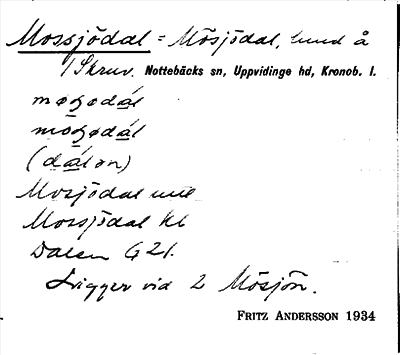 Mossjödal = Mösjödal, lund å
/Skruv. Nottebäcks sn, Uppvidinge hd, Kronob. l.
(dálən)
Mosjödal
Mossjödal kl
Dalen G21.
Ligger vid 2 Mösjön.
FRITZ ANDERSSON 1934